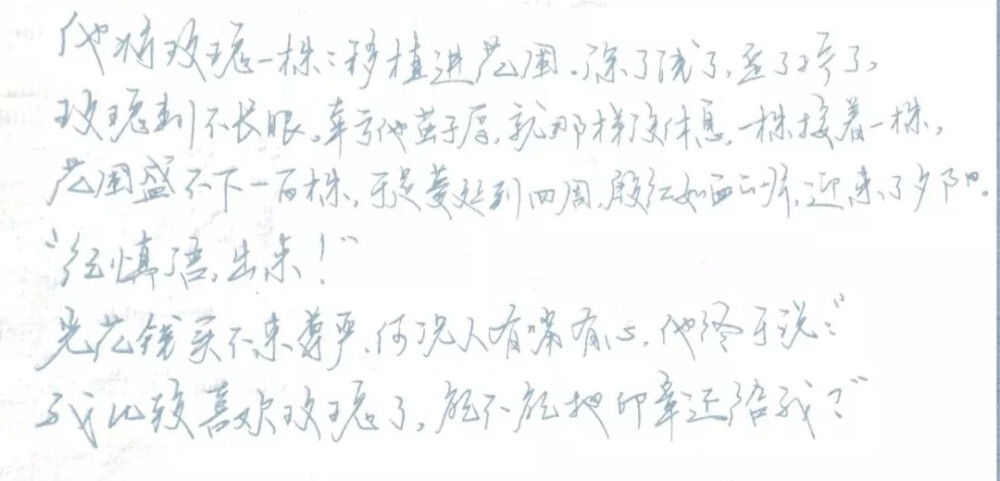 他将玫瑰一株:移植进花园。深了浅了,歪了斜了,
玫瑰刺不长眼。幸亏他茧子厚,就那样没休息,一株接着一株,
花园盛不下一百株,于是蔓延到四周,殷红如血一片,迎来了夕阳。
“纪慎语,出来!”
光花钱买不来尊严,何况人有嘴有心,他终于说:“
我比较喜欢玫瑰了,能不能把印章还给我?”